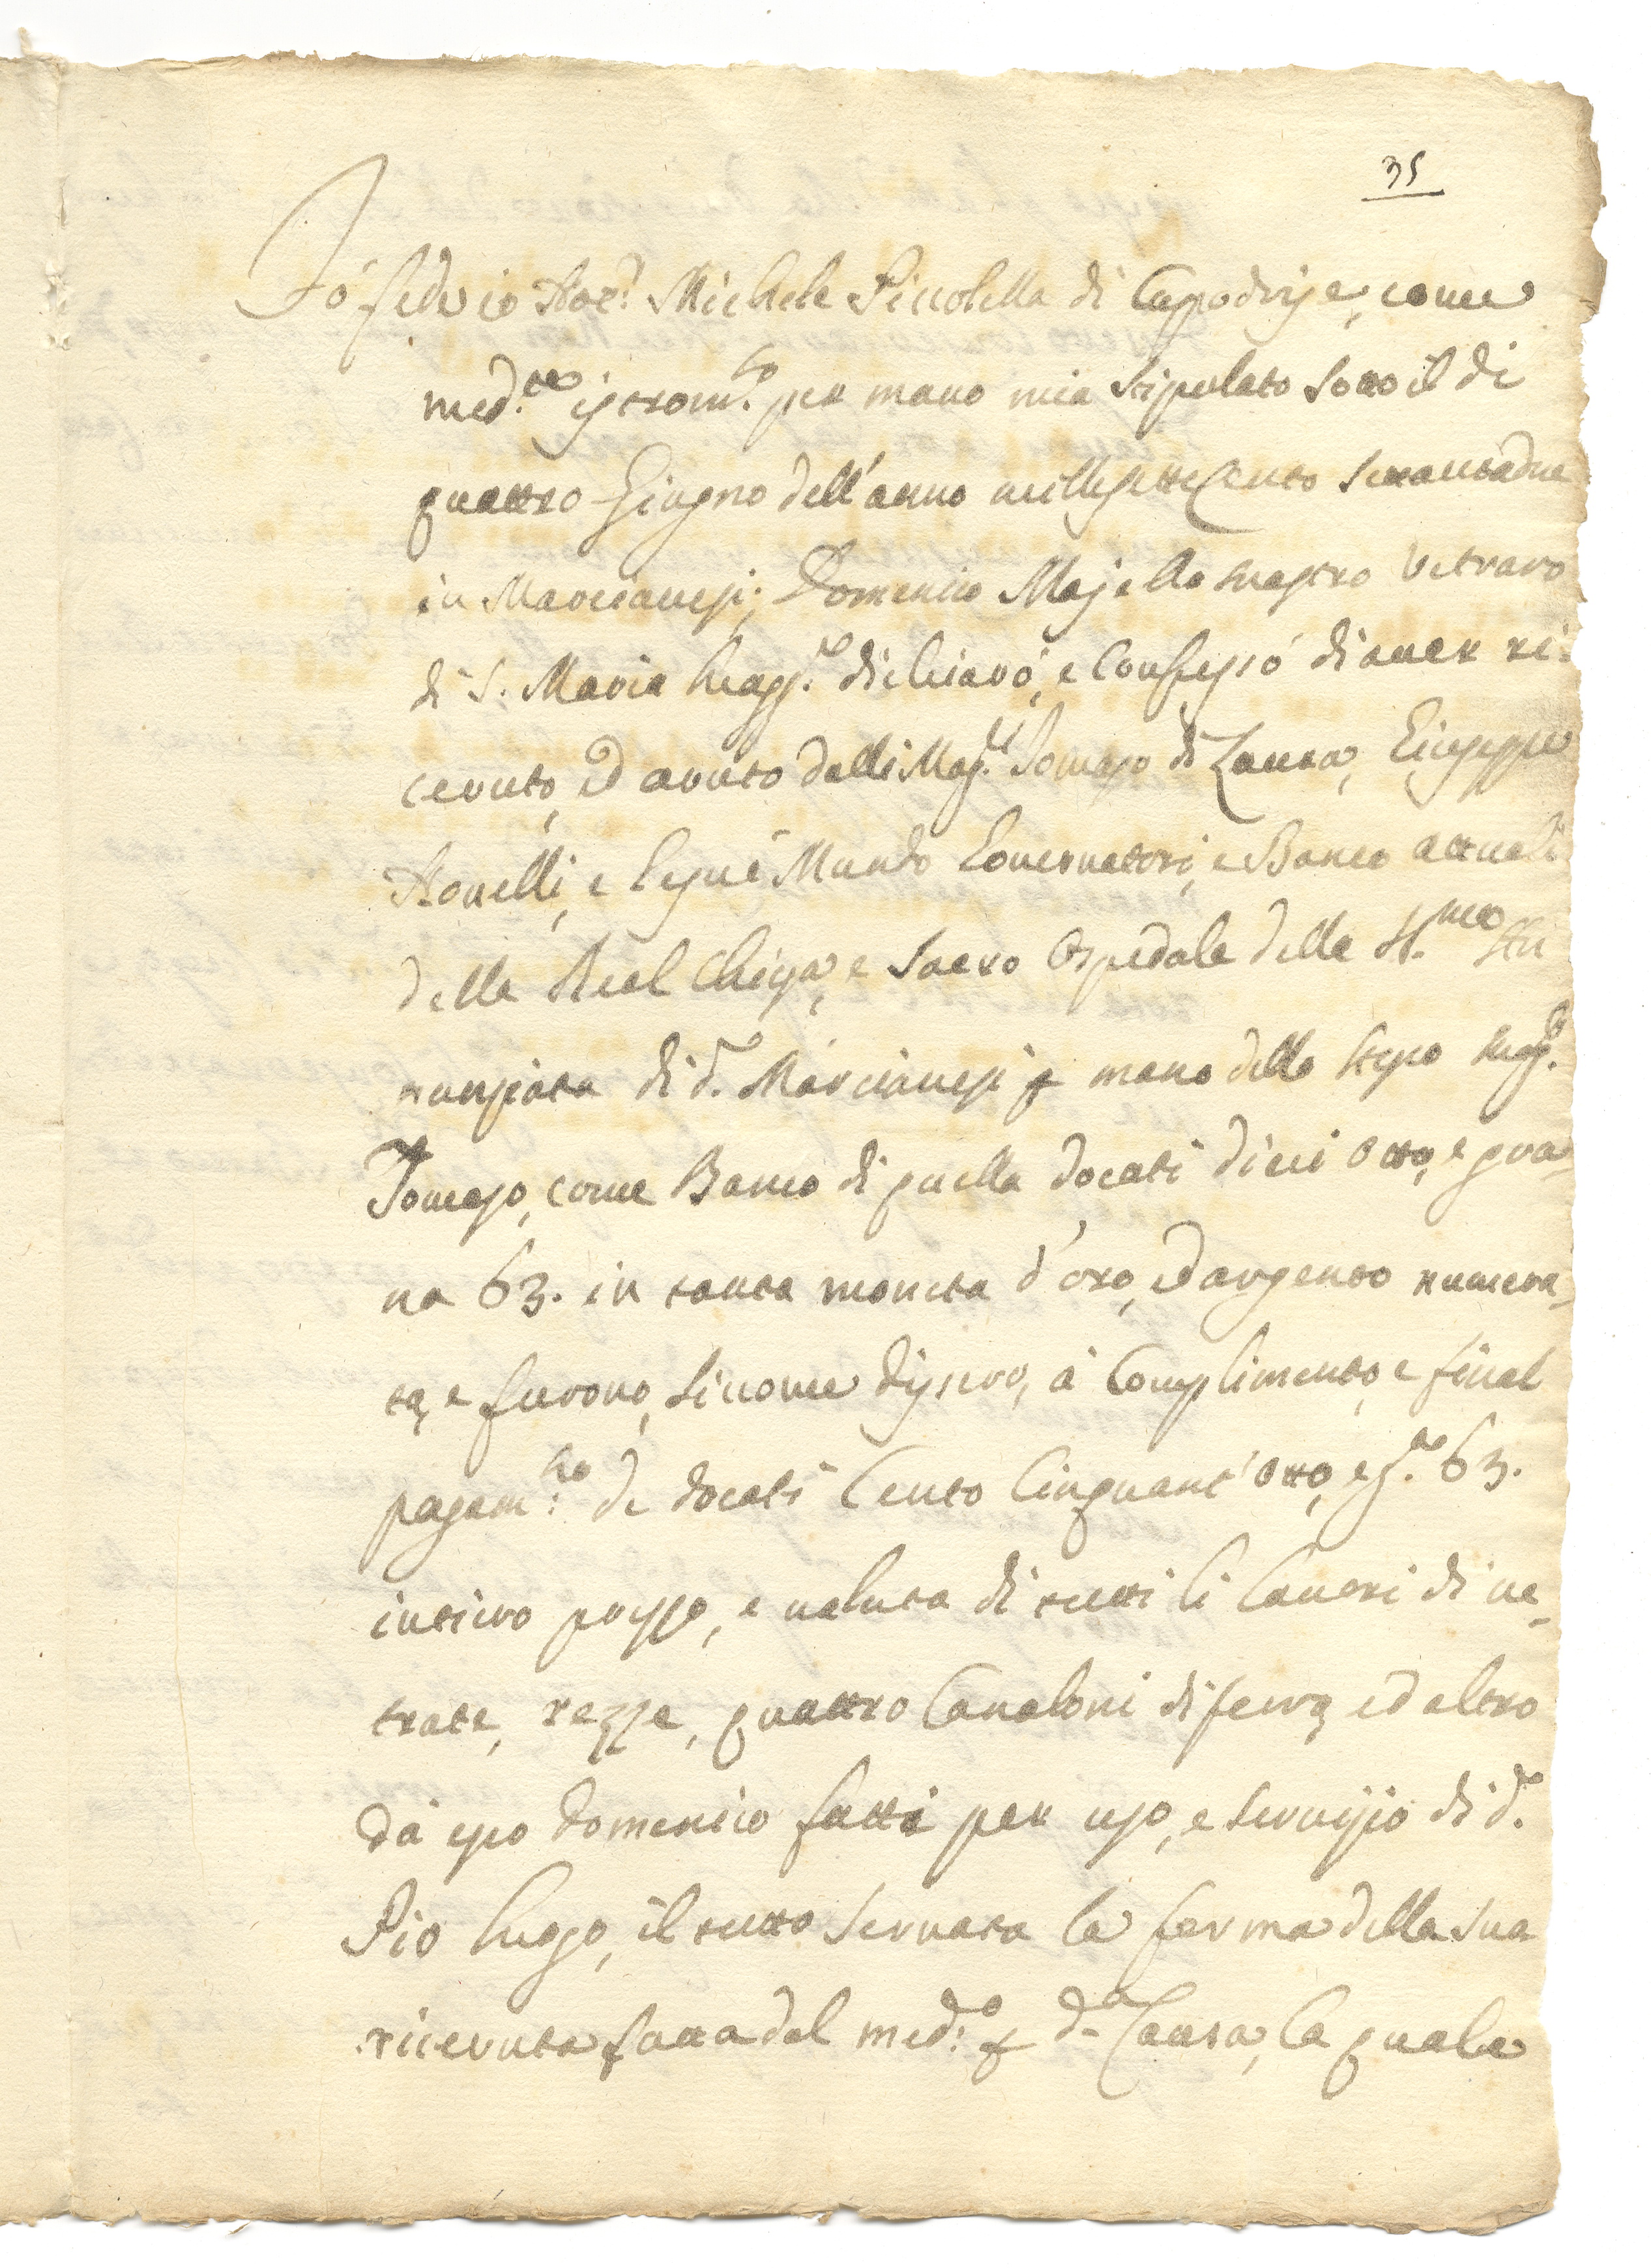 35
Fò fede io Not.r Michele Piccolella di Capodrise, come
med.te istrom.to per mano mia stipulato sotto il dì
quattro Giugno dell'anno millesettecento settantadue
in Marcianesi; Domenico Majello mastro vetraro
di S. Maria Magg.re dichiarò, e confessò di aver ri:
cevuto, ed avuto dalli Mag.ci Tomaso di Laura, Giuseppe
Novelli, e Mundo Governatori, e Banco attuali
della Real Chiesa, e Sacro Ospedale della SS.ma An
nunziata di d.o Marcianesi p mano dello stesso Mag.co
Tomaso, come Banco di quella docati dieci otto, e gra
na 63. in tanta moneta d'oro, ed argento numera
ta, e furono, siccome dissero, à complimento, e final
pagam:to de docati Cento Cinquant'otto, e g.na 63.
intiero prezzo, e valuta di tutti li lavori di ve
trate, rezze, quattro Canaloni di ferro, ed altro
dà esso Domenico fatti per uso, e servizio di d.o
Pio luogo, il tutto servata la forma della sua
ricevuta fatta dal med:o p d.a Causa, la quale